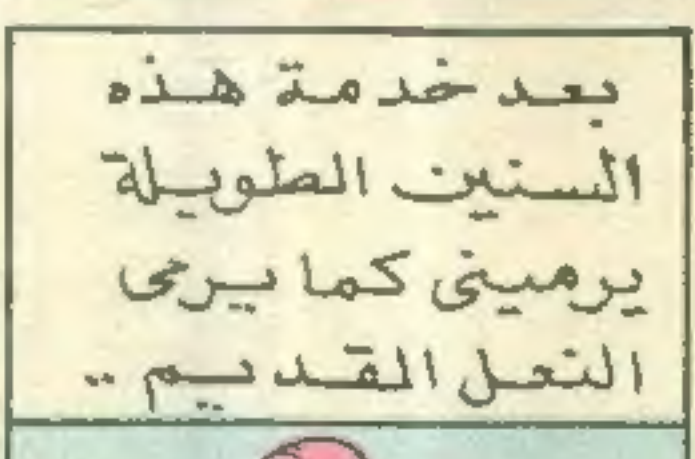 بعد خدمة هذه
السنين الطويلة
يرمينى كما يرمى
النعل القديم ..